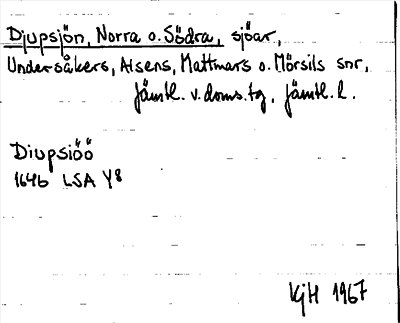 Djupsjön, Norra o. Södra, sjöar,
Undersåkers, Alsens, Mattmars o. Mörsils snr,
Jämtl. v. doms.tg, Jämtl. l.
Diupsiöö
1646 LSA Y8
KjH 1967